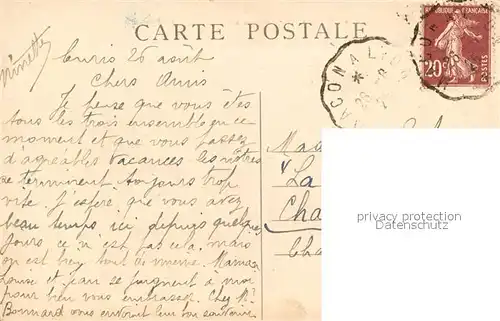 CARTE POSTALE
Minette
Curis 26 août
Chers Amis
Je pense que vous êtes
tous les trois ensemble en ce
moment et que vous passez
d'agréables vacances les nôtres
se terminent toujours trop
vite. J'espère que vous avez
beau temps ici depuis quelques
jours ce n'est pas cela mais
on est bien tout de même. Maman
Louise et Jean se joignent à moi
pour bien vous embrasser. Chez Mr
Bonnard vous envoient leur bon souvenir
MACON A LYON
26
RÉPUBLIQUE FRANÇAISE
20c
POSTES
La
Cha
Cha
privacy protection
datenschutz